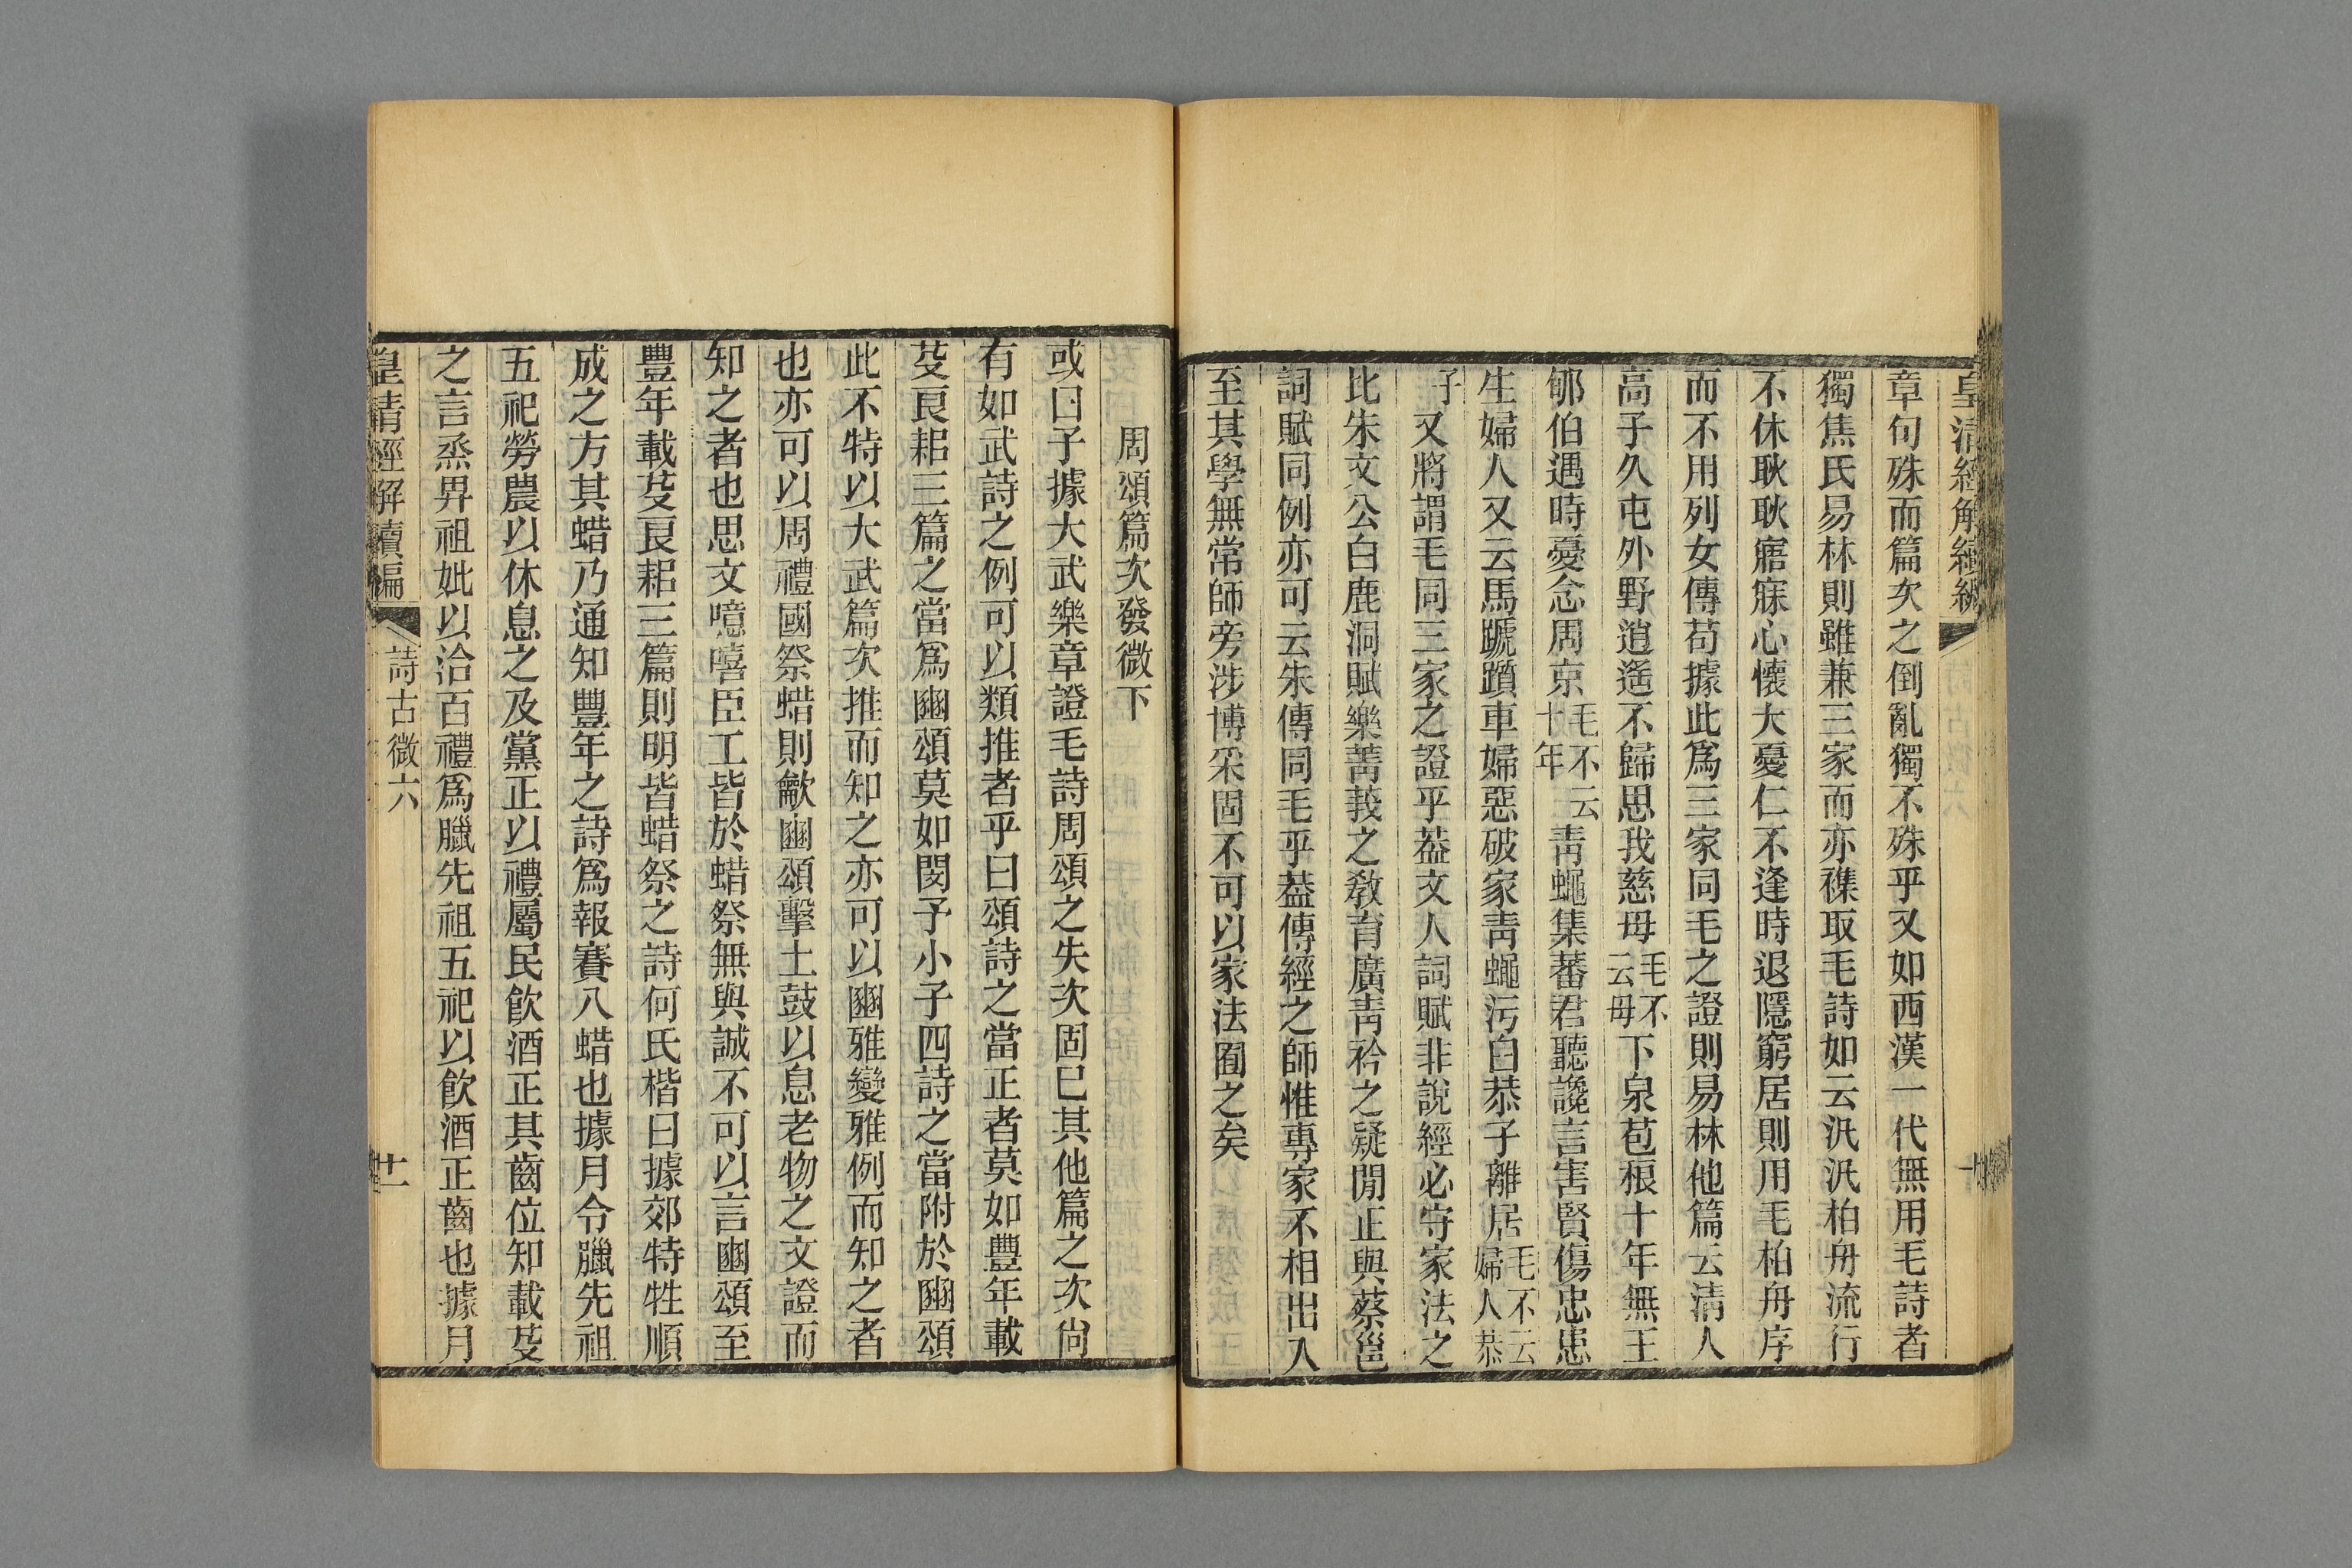 皇清經解續編
章句殊而篇次之倒亂獨不殊乎又如西漢一代無用毛詩者
獨焦氏易林則雖兼三家而亦襍取毛詩如云汎汎柏舟流行
不休耿耿寤寐心懷大憂仁不逢時退隱窮居則用毛柏舟序
而不用列女傳苟據此爲三家同毛之證則易林他篇云清人
高子久屯外野逍遙不歸思我慈母毛不云母下泉苞稂十年無王
郇伯遇時憂念周京毛不云十年靑蠅集蕃君聽讒言害賢傷忠患
生婦人又云馬蹏躓車婦惡破家靑蠅污白恭子離居毛不云婦人恭
子又將謂毛同三家之證乎葢文人詞賦非說經必守家法之
比朱文公白鹿洞賦樂菁莪之敎育廣靑衿之疑閒正與蔡邕
詞賦同例亦可云朱傳同毛乎葢傳經之師惟專家不相出入
至其學無常師旁涉博采固不可以家法囿之矣
周頌篇次發微下
或曰子據大武樂章證毛詩周頌之失次固已其他篇之次尙
有如武詩之例可以類推者乎曰頌詩之當正者莫如豐年載
芟良耜三篇之當爲豳頌莫如閔予小子四詩之當附於豳頌
此不特以大武篇次推而知之亦可以豳雅變雅例而知之者
也亦可以周禮國祭蜡則龡豳頌擊土鼓以息老物之文證而
知之者也思文噫嘻臣工皆於蜡祭無與誠不可以言豳頌至
豐年載芟良耜三篇則明皆蜡祭之詩何氏楷曰據郊特牲順
成之方其蜡乃通知豐年之詩爲報賽八蜡也據月令臘先祖
五祀勞農以休息之及黨正以禮屬民飮酒正其齒位知載芟
之言烝畀祖妣以洽百禮爲臘先祖五祀以飮酒正齒也據月
皇清經解續編
詩古微六
十一